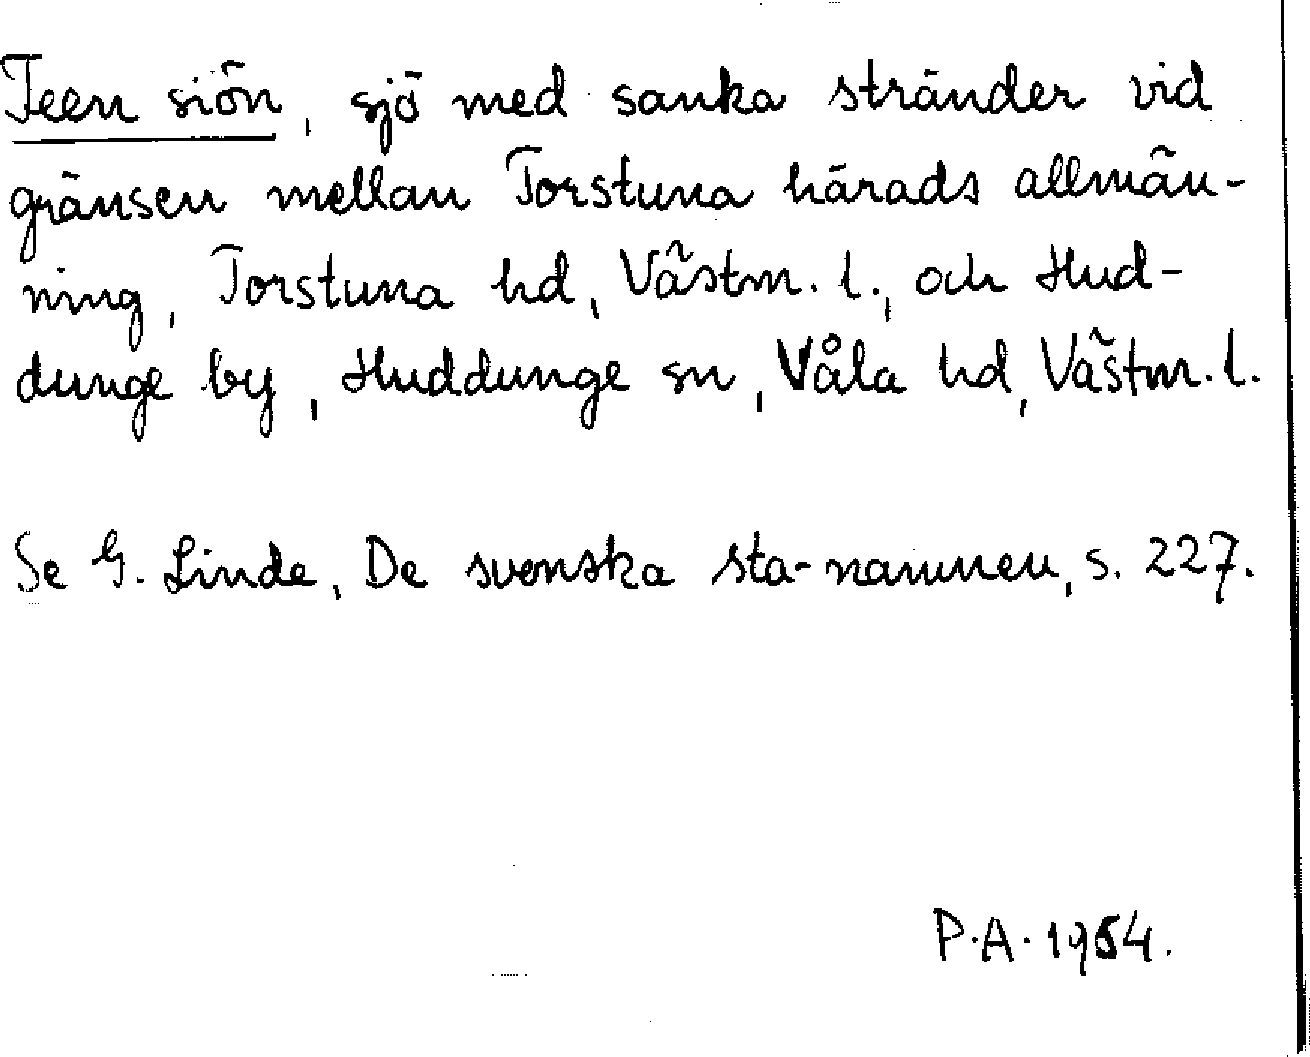 Teen siön, sjö med sanka stränder vid
gränsen mellan Torstuna härads allmän-
ning, Torstuna hd, Västm. l., och Hud-
dunge by, Huddunge sn, Våla hd, Västm. l.
Se G. Linde, De svenska sta-namnen, s. 227.
P.A. 1964.